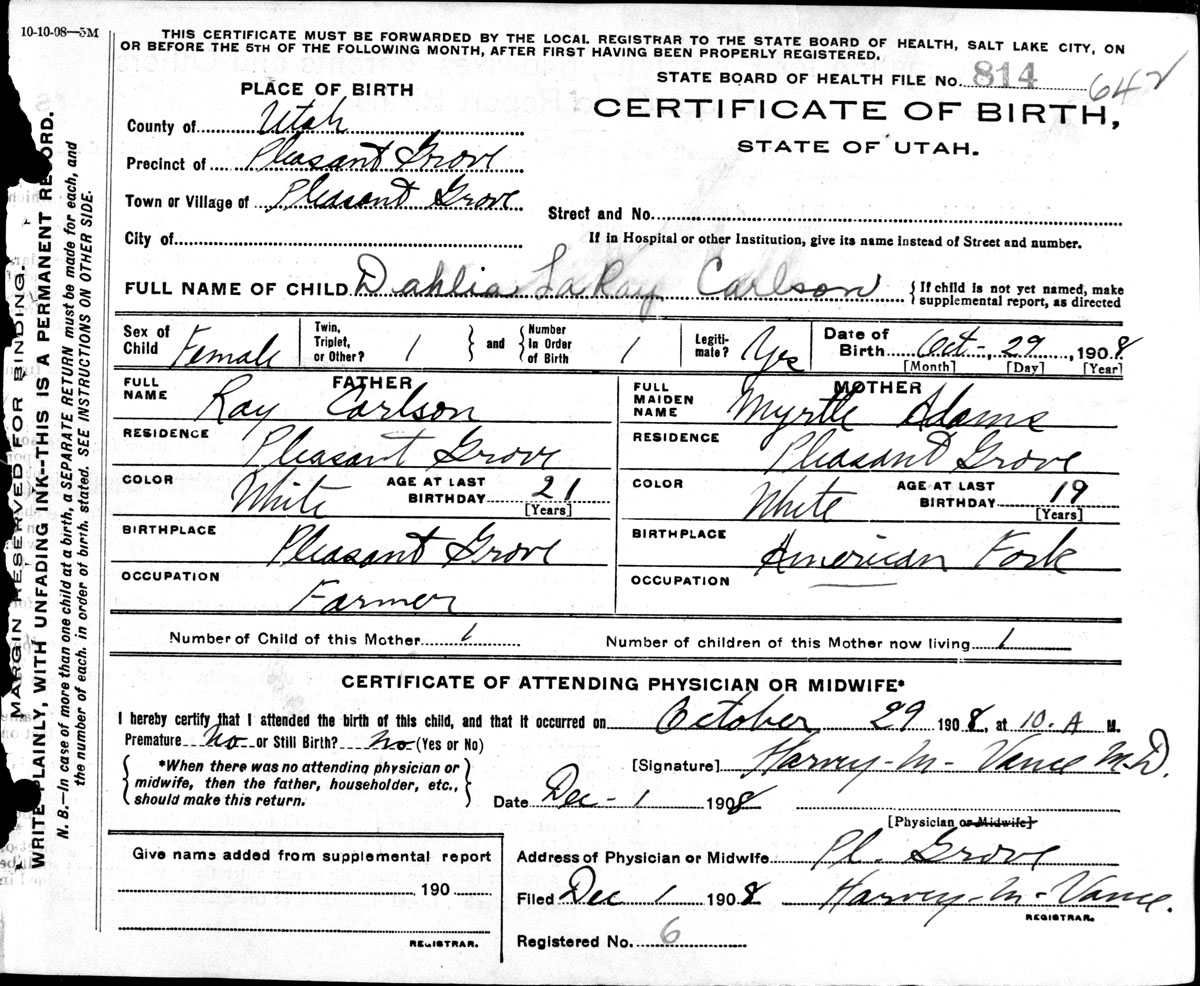 10-10-08—5M
THIS CERTIFICATE MUST BE FORWARDED BY THE LOCAL REGISTRAR TO THE STATE BOARD OF HEALTH, SALT LAKE CITY, ON
OR BEFORE THE 5TH OF THE FOLLOWING MONTH, AFTER FIRST HAVING BEEN PROPERLY REGISTERED.
STATE BOARD OF HEALTH FILE No. 814 642
PLACE OF BIRTH
CERTIFICATE OF BIRTH,
STATE OF UTAH.
County of Utah
Precinct of Pleasant Grove
Town or Village of Pleasant Grove
Street and No.
City of
If in Hospital or other Institution, give its name instead of Street and number.
FULL NAME OF CHILD Dahlia LaRay Carlson { If child is not yet named, make
supplemental report, as directed
Sex of Child Female Twin, Triplet, or Other? 1 } and { Number In Order of Birth 1 Legiti-mate? Yes Date of Birth Oct-, 29, 1908
[Month] [Day] [Year]
FATHER
FULL NAME Ray Carlson
RESIDENCE Pleasant Grove
COLOR White AGE AT LAST BIRTHDAY 21
[Years]
BIRTHPLACE Pleasant Grove
OCCUPATION Farmer
MOTHER
FULL MAIDEN NAME Myrtle Adams
RESIDENCE Pleasant Grove
COLOR White AGE AT LAST BIRTHDAY 19
[Years]
BIRTHPLACE American Fork
OCCUPATION
Number of Child of this Mother 1 Number of children of this Mother now living 1
CERTIFICATE OF ATTENDING PHYSICIAN OR MIDWIFE*
I hereby certify that I attended the birth of this child, and that it occurred on October 29 1908, at 10. A M.
Premature No or Still Birth? No (Yes or No)
{ *When there was no attending physician or
midwife, then the father, householder, etc.,
should make this return. }
[Signature] Harvey-M-Vance M.D.
Date Dec-1 1908
[Physician or Midwife]
Give name added from supplemental report
190
REGISTRAR.
Address of Physician or Midwife Pl. Grove
Filed Dec 1 1908 Harvey-M-Vance.
REGISTRAR.
Registered No. 6
MARGIN RESERVED FOR BINDING.
WRITE PLAINLY, WITH UNFADING INK--THIS IS A PERMANENT RECORD.
N. B.—In case of more than one child at a birth, a SEPARATE RETURN must be made for each, and
the number of each, in order of birth, stated. SEE INSTRUCTIONS ON OTHER SIDE.